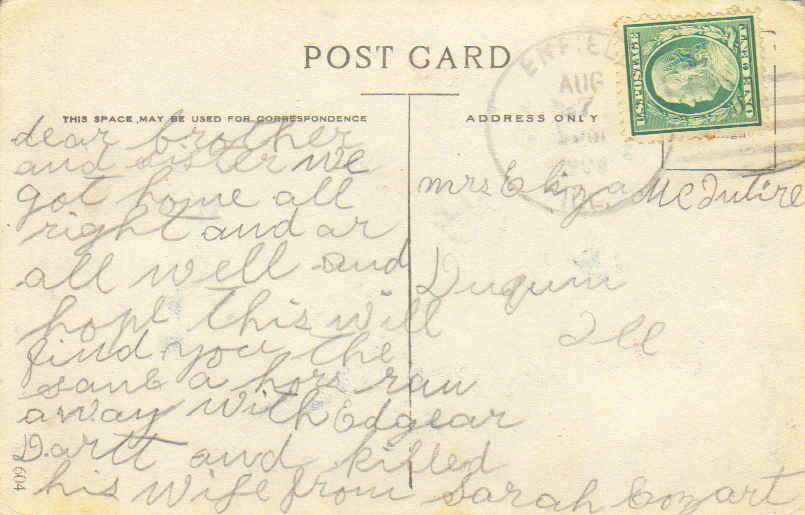 POST CARD
THIS SPACE, MAY BE USED FOR CORRESPONDENCE
ADDRESS ONLY
ENFIEL
AUG
7
ILL.
U.S. POSTAGE
ONE CENT
dear brother
and sister we
got home all
right and ar
all well and
hope this will
find you the
same a hors ran
away with Edgear
Dartt and killed
his wife from Sarah Cozart
mrs Eliza McIntire
Duquin
Ill
604